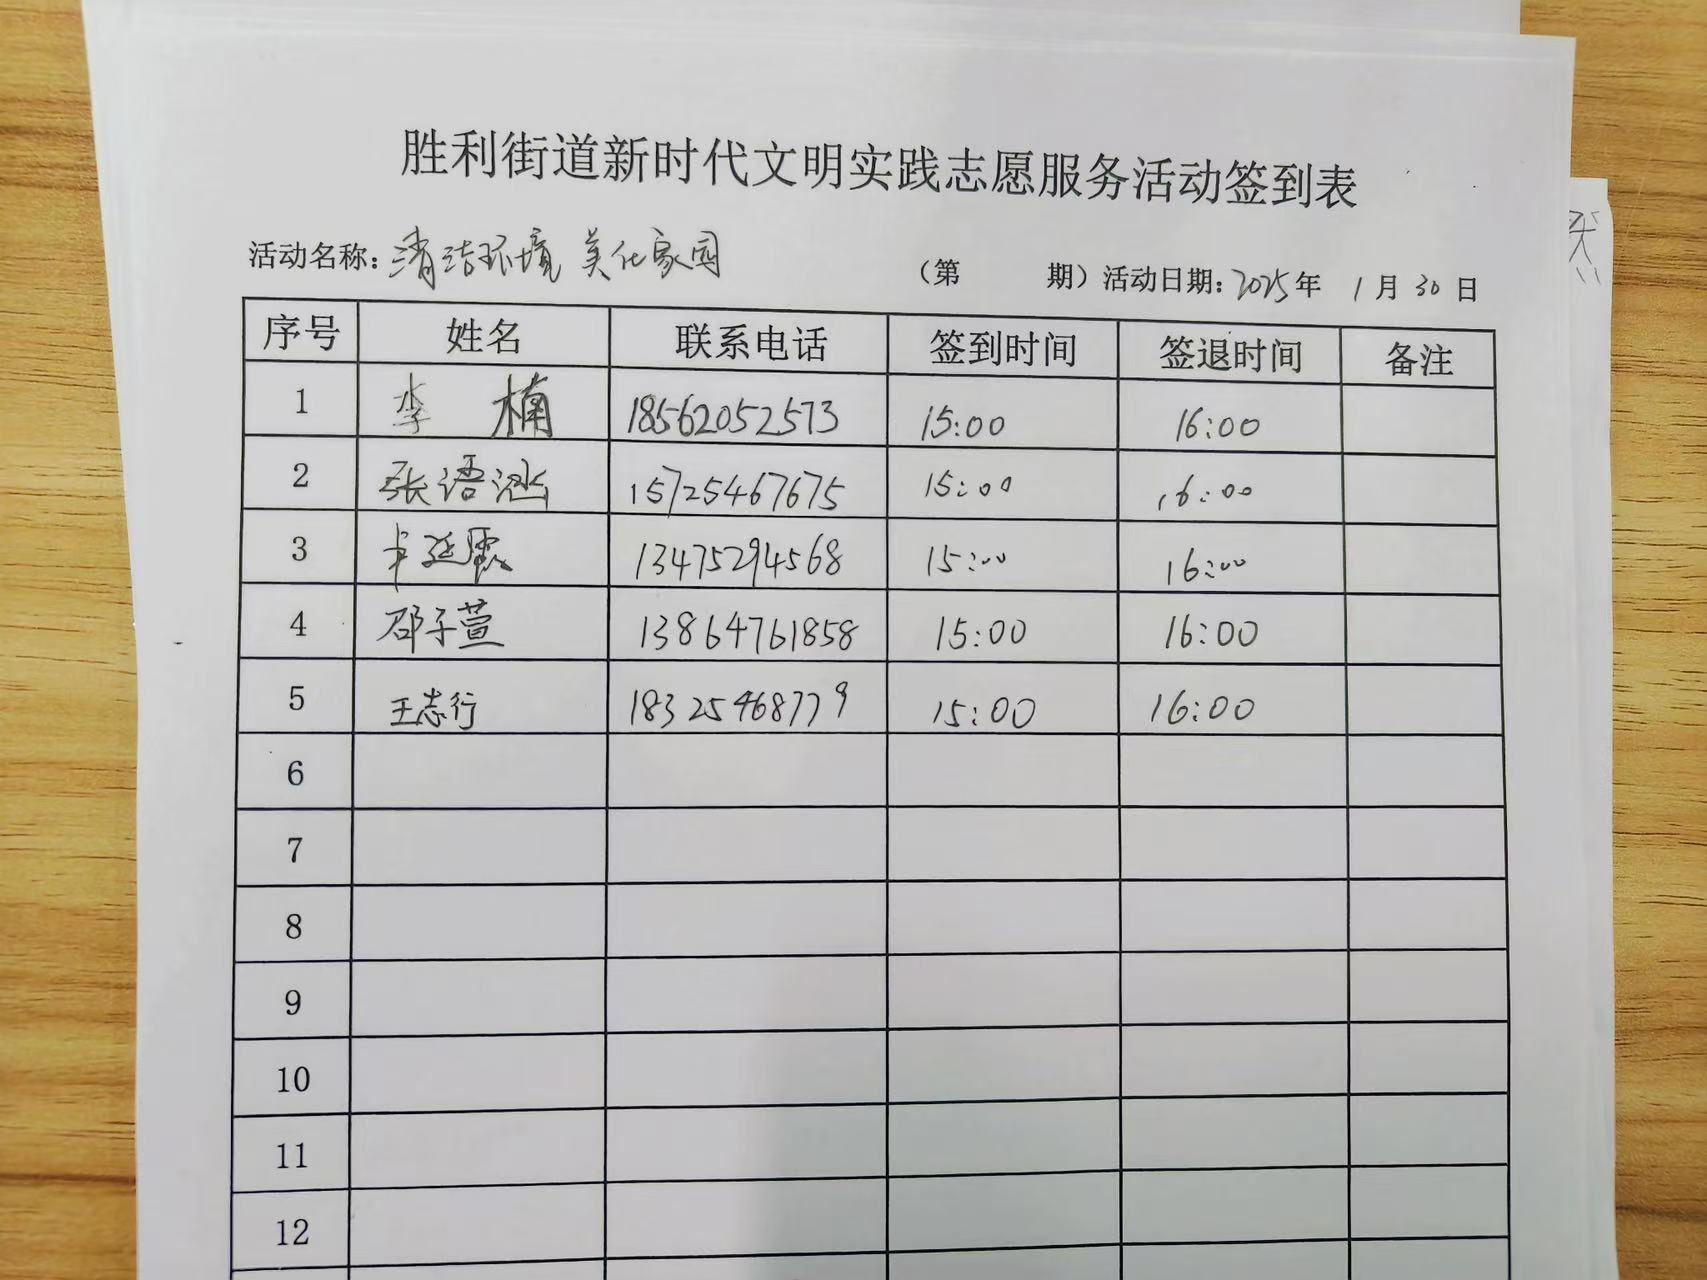 胜利街道新时代文明实践志愿服务活动签到表
活动名称:清洁环境 美化家园 (第 期) 活动日期:2025年 1月30日
序号 姓名 联系电话 签到时间 签退时间 备注
1 李楠 18562052573 15:00 16:00
2 张语涵 15725467675 15:00 16:00
3 13475294568 15:00 16:00
4 邵子萱 13864761858 15:00 16:00
5 王志行 18325468779 15:00 16:00
6
7
8
9
10
11
12